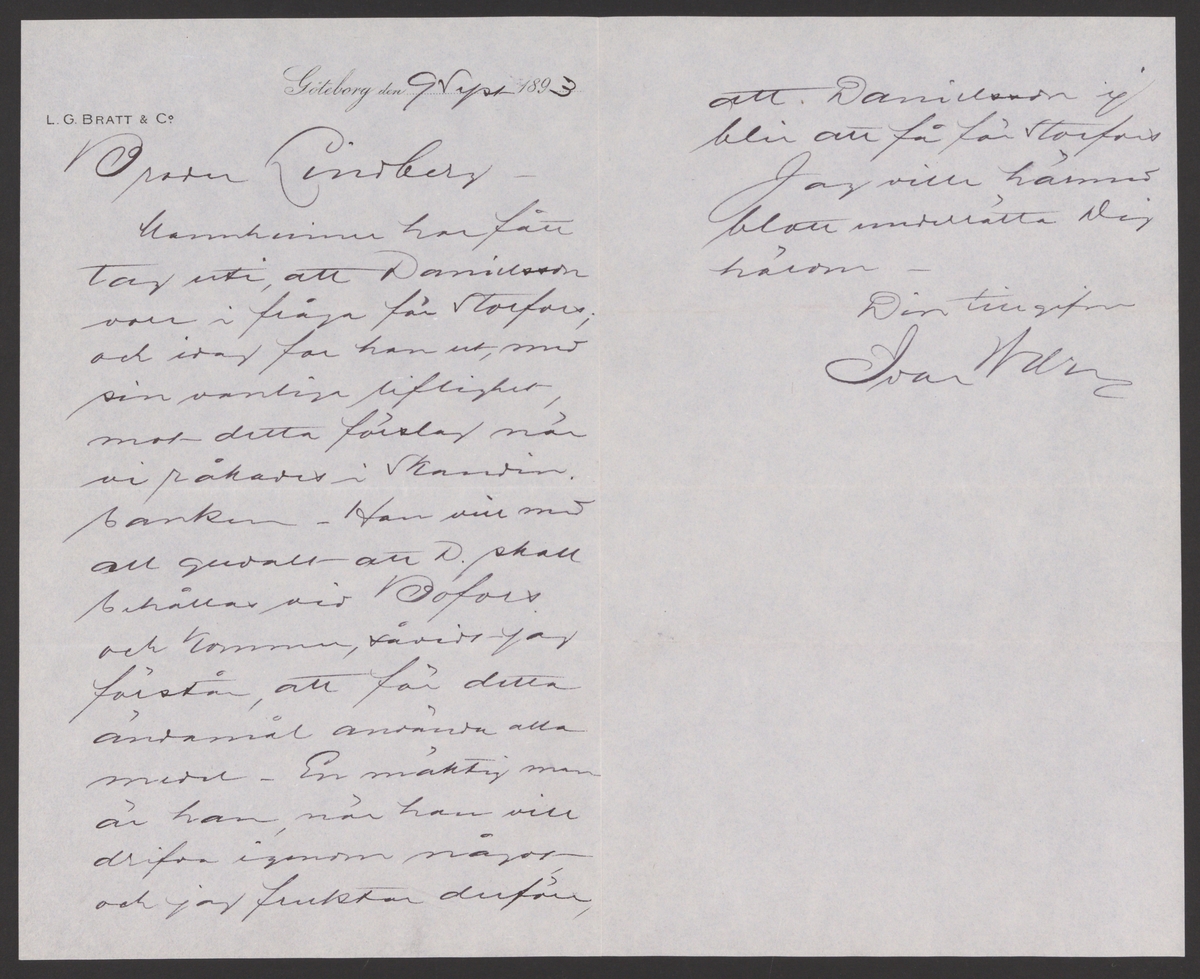 Göteborg den 9 Sept 1893
L. G. BRATT & Co.
Broder Lindberg –
Mannheimer har fått
tag uti, att Danielsson
vore i fråga för Storfors;
och idag for han ut, med
sin vanliga liflighet,
mot detta förslag när
vi råkades i Skandin.
banken – Han vill med
all gewalt att D. skall
behållas vid Bofors
och kommer, såvidt jag
förstår, att för detta
ändamål använda alla
medel – En mäktig man
är han, när han vill
drifva igenom något
och jag fruktar derföre,
att Danielsson ej
blir att få för Storfors
Jag ville härmed
blott underrätta Dig
härom –
Din tillgifne
Ivar